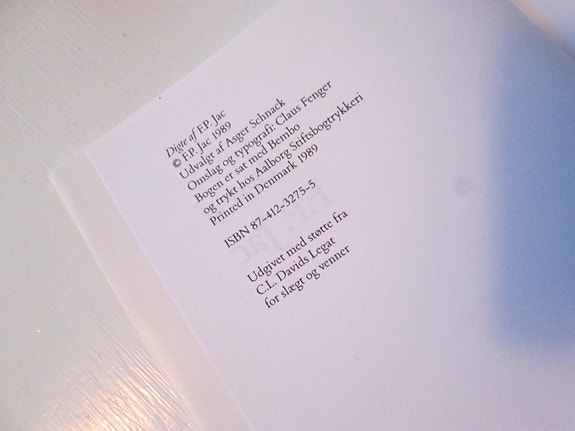 Digte af F.P. Jac
© F.P. Jac 1989
Udvalgt af Asger Schnack
Omslag og typografi: Claus Fenger
Bogen er sat med Bembo
og trykt hos Aalborg Stiftsbogtrykkeri
Printed in Denmark 1989
ISBN 87-412-3275-5
Udgivet med støtte fra
C.L. Davids Legat
for slægt og venner
F.P. Jac